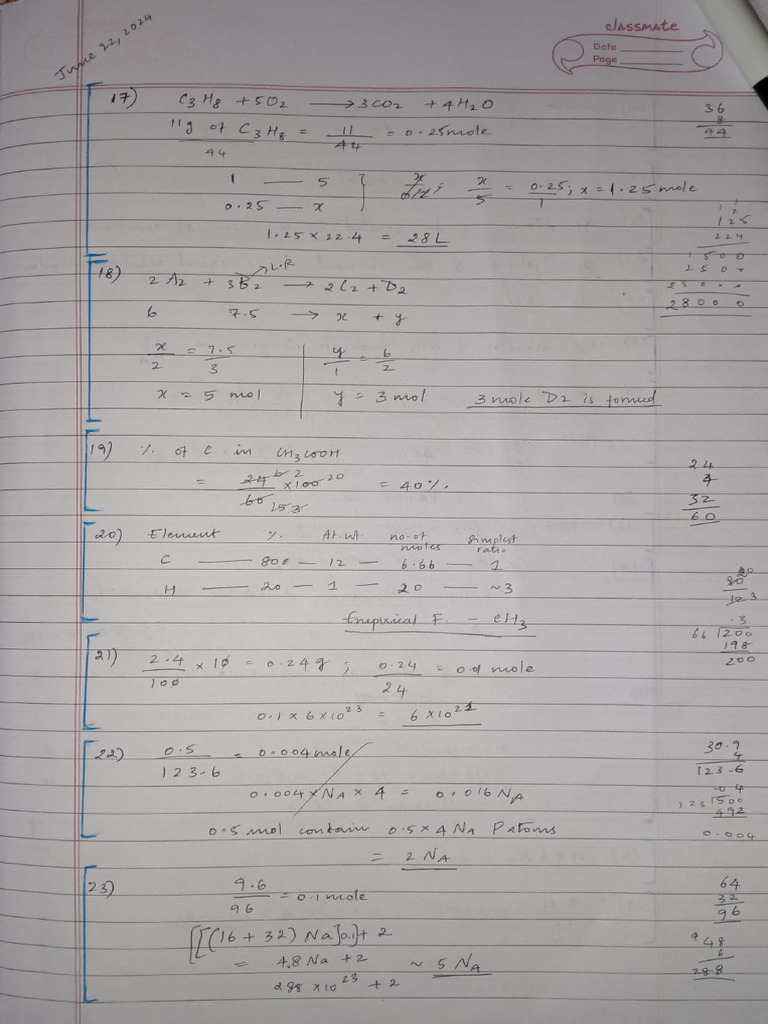 June 22, 2024
classmate
Date
Page
17) C3H8 + 5O2 ⟶ 3CO2 + 4H2O
11g of C3H8 = 11/44 = 0.25mole
44
1 — 5
0.25 — x
x/5 = 0.25/1 ; x = 1.25 mole
1.25 × 22.4 = 28L
36
8
44
125
224
1500
2500
25000
28000 0
18) 2A2 + 3B2 ⟶ 2C2 + D2
L.R
6 7.5 → x + y
x/2 = 7.5/3
y/1 = 6/2
x = 5 mol
y = 3 mol
3 mole D2 is formed
19) % of C in CH3COOH
= 24/60 × 100 = 40%.
6 2 20
15 3
24
4
32
60
20) Element % At.wt. no.of moles simplest ratio
C — 80 — 12 — 6.66 — 1
H — 20 — 1 — 20 — ~3
Empirical F. - CH3
20
80
12 3
.3
66 1200
198
200
21) 2.4/100 × 10 = 0.24g ; 0.24/24 = 0.1 mole
0.1 × 6×10^23 = 6×10^21
22) 0.5/123.6 = 0.004mole
0.004 × NA × 4 = 0.016 NA
0.5 mol contain 0.5×4 NA P atoms
= 2 NA
30.9
4
123.6
.04
123 1500
492
0.004
23) 9.6/96 = 0.1 mole
[[(16 + 32) Na]0.1]+ 2
= 4.8 Na + 2 ~ 5 NA
288 × 10^23 + 2
64
32
96
48
6
288